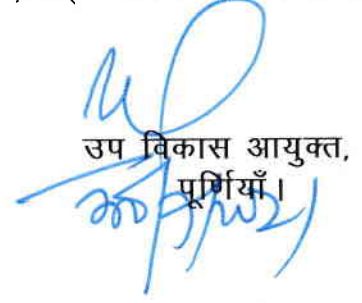 उप विकास आयुक्त,
पूर्णियाँ।